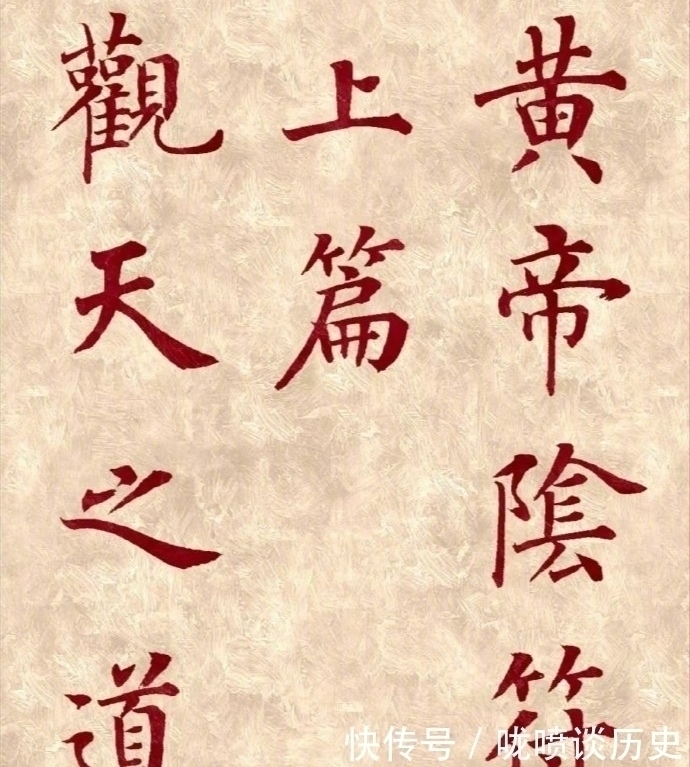 黄帝陰符
上篇
觀天之道
快传号/咙喷谈历史